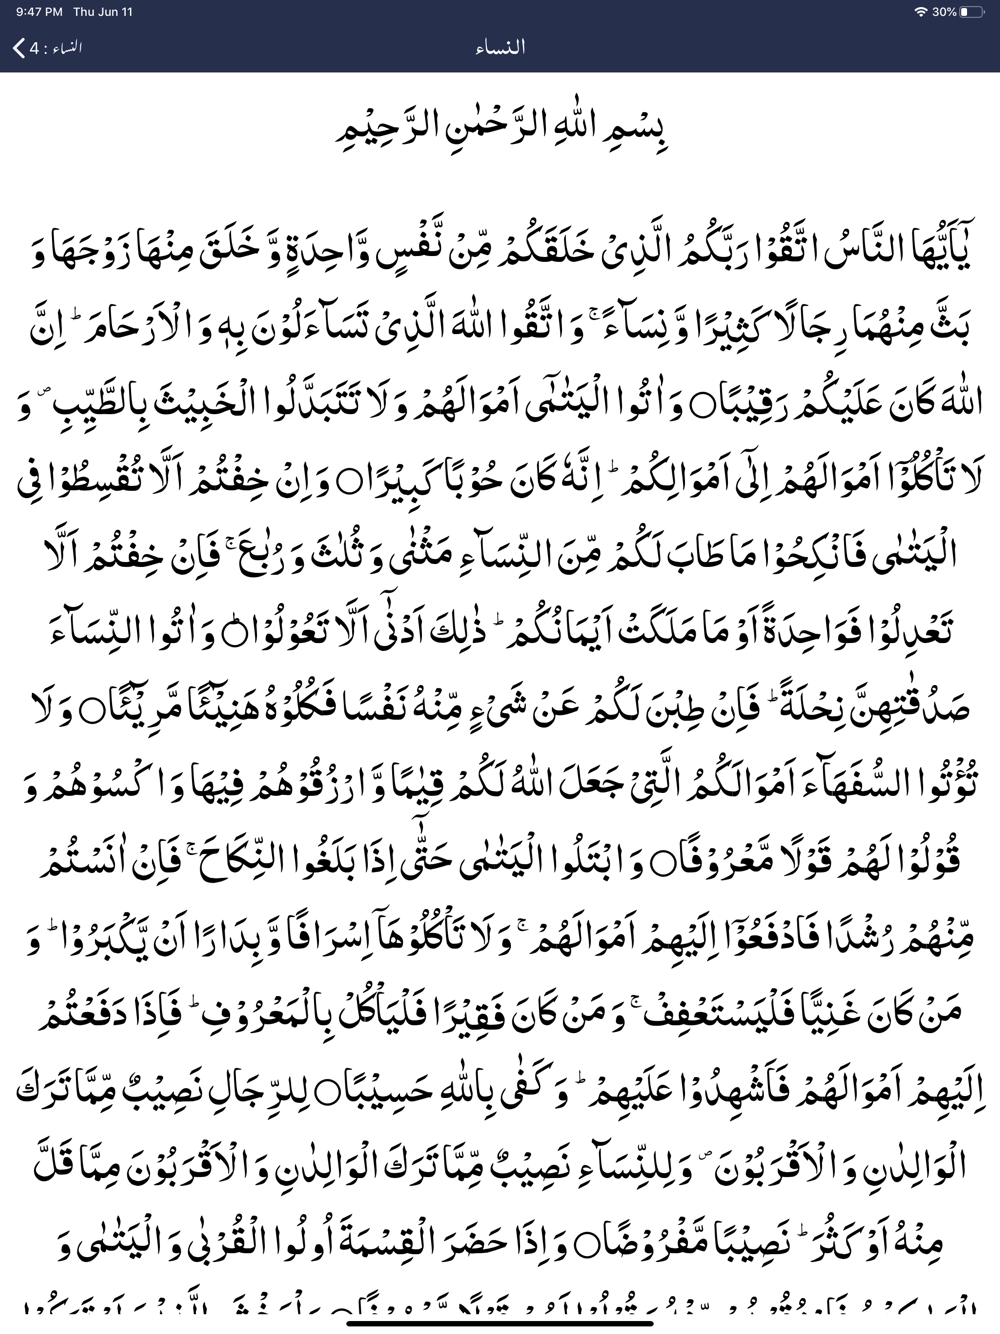 9:47 PM Thu Jun 11 30%
النساء : 4 النساء
بِسْمِ اللّٰهِ الرَّحْمٰنِ الرَّحِيْمِ
يٰۤاَيُّهَا النَّاسُ اتَّقُوْا رَبَّكُمُ الَّذِىْ خَلَقَكُمْ مِّنْ نَّفْسٍ وَّاحِدَةٍ وَّ خَلَقَ مِنْهَا زَوْجَهَا وَ
بَثَّ مِنْهُمَا رِجَالًا كَثِيْرًا وَّ نِسَآءً ۚ وَ اتَّقُوا اللّٰهَ الَّذِىْ تَسَآءَلُوْنَ بِهٖ وَ الْاَرْحَامَ ؕ اِنَّ
اللّٰهَ كَانَ عَلَيْكُمْ رَقِيْبًا○ وَ اٰتُوا الْيَتٰمٰٓى اَمْوَالَهُمْ وَ لَا تَتَبَدَّلُوا الْخَبِيْثَ بِالطَّيِّبِ ۪ وَ
لَا تَاْكُلُوْۤا اَمْوَالَهُمْ اِلٰٓى اَمْوَالِكُمْ ؕ اِنَّهٗ كَانَ حُوْبًا كَبِيْرًا○ وَ اِنْ خِفْتُمْ اَلَّا تُقْسِطُوْا فِى
الْيَتٰمٰى فَانْكِحُوْا مَا طَابَ لَكُمْ مِّنَ النِّسَآءِ مَثْنٰى وَ ثُلٰثَ وَ رُبٰعَ ۚ فَاِنْ خِفْتُمْ اَلَّا
تَعْدِلُوْا فَوَاحِدَةً اَوْ مَا مَلَكَتْ اَيْمَانُكُمْ ؕ ذٰلِكَ اَدْنٰٓى اَلَّا تَعُوْلُوْا○ؕ وَ اٰتُوا النِّسَآءَ
صَدُقٰتِهِنَّ نِحْلَةً ؕ فَاِنْ طِبْنَ لَكُمْ عَنْ شَىْءٍ مِّنْهُ نَفْسًا فَكُلُوْهُ هَنِيْٓـًٔا مَّرِيْٓـًٔا○ وَ لَا
تُؤْتُوا السُّفَهَآءَ اَمْوَالَكُمُ الَّتِىْ جَعَلَ اللّٰهُ لَكُمْ قِيٰمًا وَّ ارْزُقُوْهُمْ فِيْهَا وَ اكْسُوْهُمْ وَ
قُوْلُوْا لَهُمْ قَوْلًا مَّعْرُوْفًا○ وَ ابْتَلُوا الْيَتٰمٰى حَتّٰۤى اِذَا بَلَغُوا النِّكَاحَ ۚ فَاِنْ اٰنَسْتُمْ
مِّنْهُمْ رُشْدًا فَادْفَعُوْۤا اِلَيْهِمْ اَمْوَالَهُمْ ۚ وَ لَا تَاْكُلُوْهَاۤ اِسْرَافًا وَّ بِدَارًا اَنْ يَّكْبَرُوْا ؕ وَ
مَنْ كَانَ غَنِيًّا فَلْيَسْتَعْفِفْ ۚ وَ مَنْ كَانَ فَقِيْرًا فَلْيَاْكُلْ بِالْمَعْرُوْفِ ؕ فَاِذَا دَفَعْتُمْ
اِلَيْهِمْ اَمْوَالَهُمْ فَاَشْهِدُوْا عَلَيْهِمْ ؕ وَ كَفٰى بِاللّٰهِ حَسِيْبًا○ لِلرِّجَالِ نَصِيْبٌ مِّمَّا تَرَكَ
الْوَالِدٰنِ وَ الْاَقْرَبُوْنَ ۪ وَ لِلنِّسَآءِ نَصِيْبٌ مِّمَّا تَرَكَ الْوَالِدٰنِ وَ الْاَقْرَبُوْنَ مِمَّا قَلَّ
مِنْهُ اَوْ كَثُرَ ؕ نَصِيْبًا مَّفْرُوْضًا○ وَ اِذَا حَضَرَ الْقِسْمَةَ اُولُوا الْقُرْبٰى وَ الْيَتٰمٰى وَ